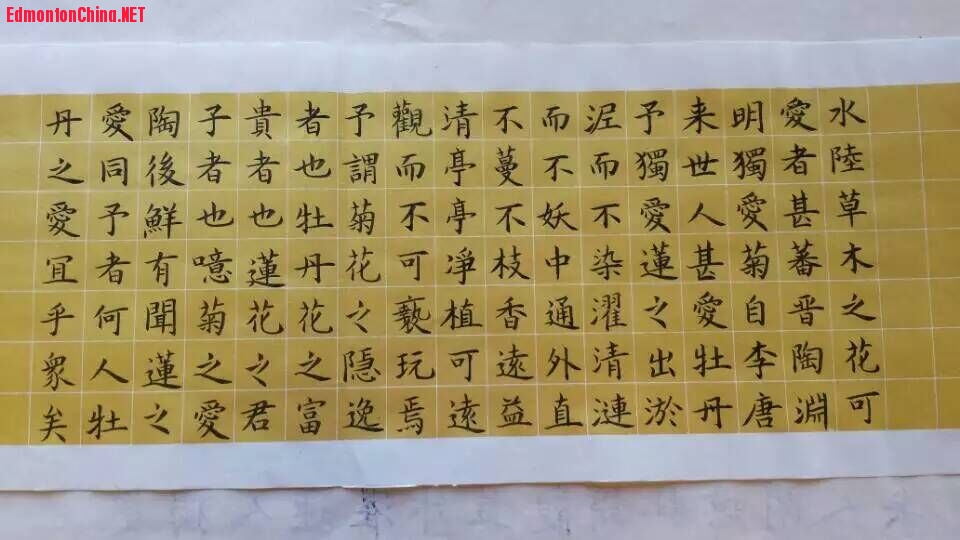 EdmontonChina.NET
水陸草木之花可
愛者甚蕃晋陶淵
明獨愛菊自李唐
来世人甚愛牡丹
予獨愛蓮之出淤
泥而不染濯清漣
而不妖中通外直
不蔓不枝香遠益
清亭亭凈植可遠
觀而不可褻玩焉
予謂菊花之隱逸
者也牡丹花之富
貴者也蓮花之君
子者也噫菊之愛
陶後鮮有聞蓮之
愛同予者何人牡
丹之愛宜乎衆矣